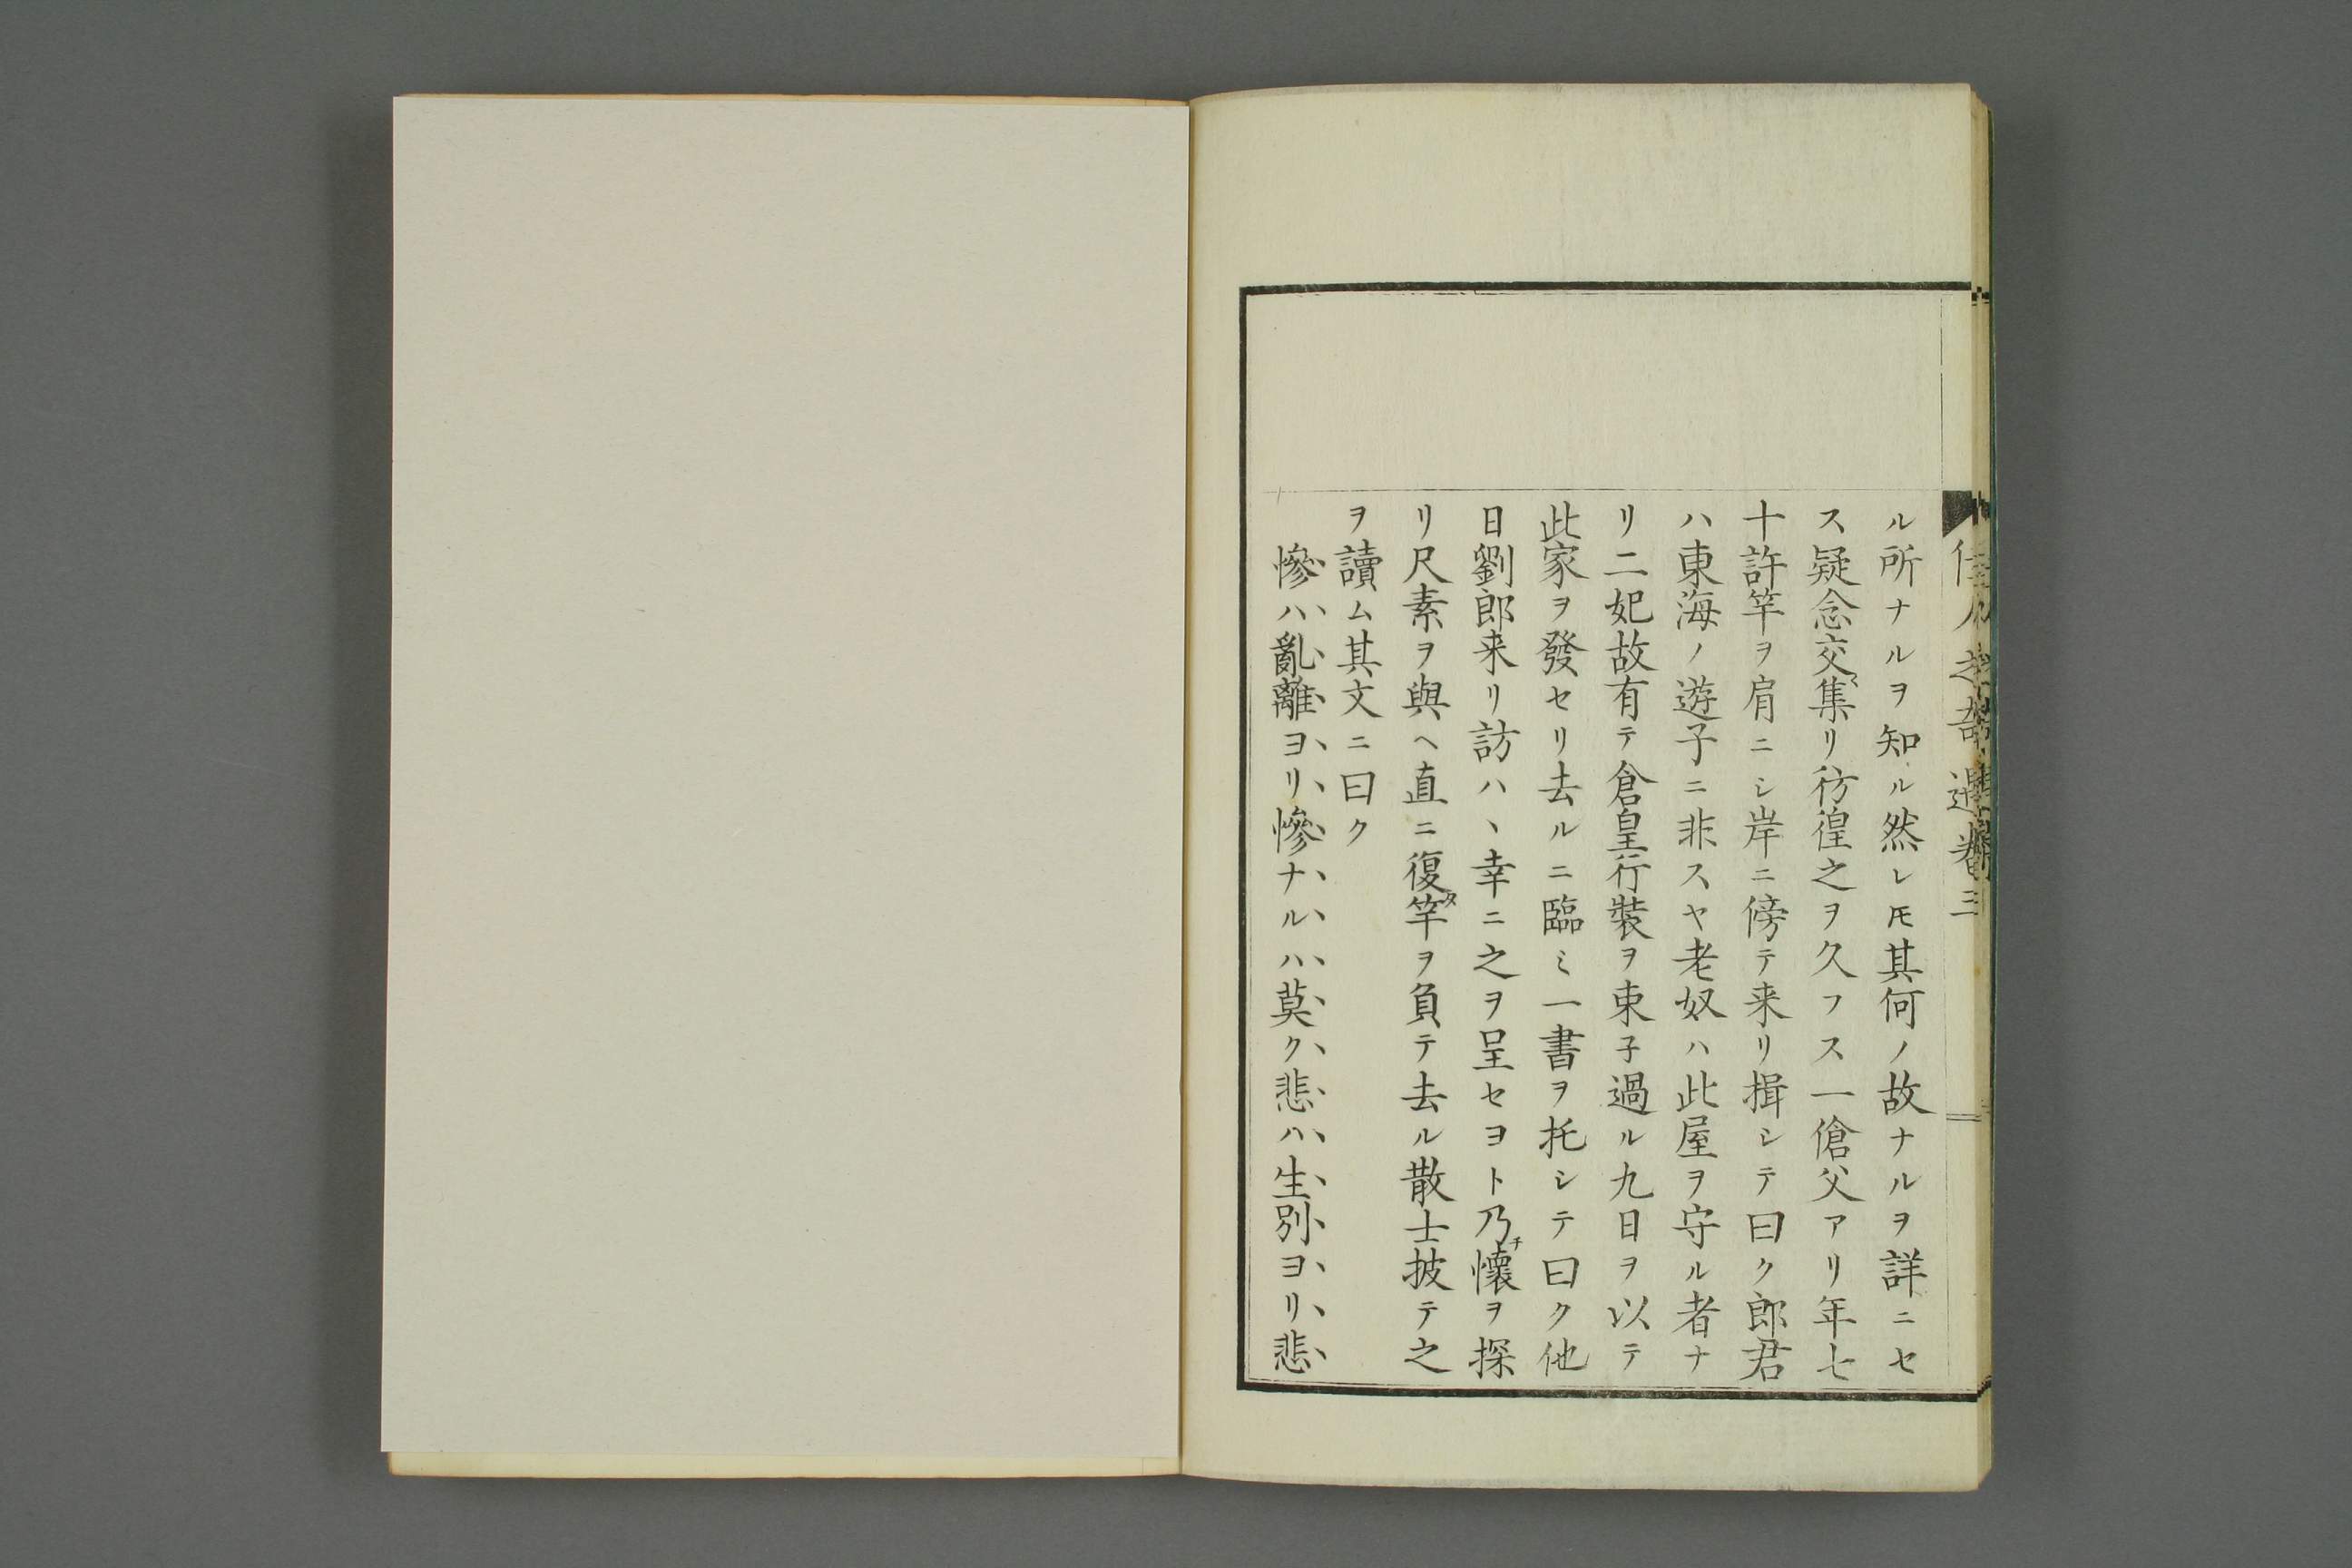 佳人之奇遇卷三
ル所ナルヲ知ル然レ𪜈其何ノ故ナルヲ詳ニセ
ス疑念交〻集リ彷徨之ヲ久フス一傖父アリ年七
十許竿ヲ肩ニシ岸ニ傍テ来リ揖シテ曰ク郎君
ハ東海ノ遊子ニ非スヤ老奴ハ此屋ヲ守ル者ナ
リ二妃故有テ倉皇行裝ヲ束子過ル九日ヲ以テ
此家ヲ發セリ去ルニ臨ミ一書ヲ托シテ曰ク他
日劉郎来リ訪ハヽ幸ニ之ヲ呈セヨト乃チ懷ヲ探
リ尺素ヲ與ヘ直ニ復タ竿ヲ負テ去ル散士披テ之
ヲ讀ム其文ニ曰ク
慘ハ亂離ヨリ慘ナルハ莫ク悲ハ生別ヨリ悲